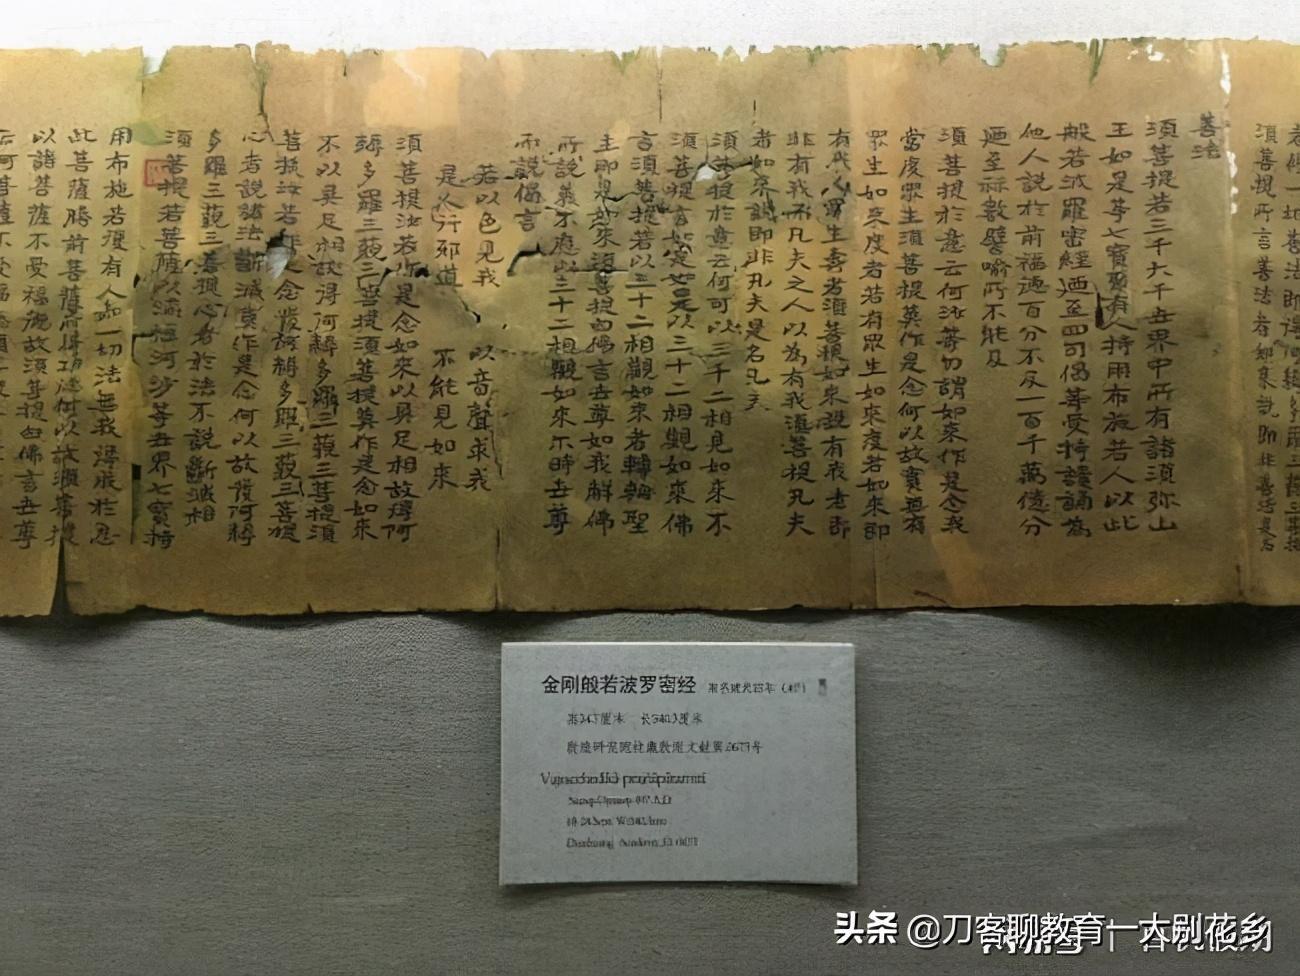 須菩提所言善法者如來說即非善法是名
善法
須菩提若三千大千世界中所有諸須弥山
王如是等七寶聚有人持用布施若人以此
般若波羅蜜經迺至四句偈等受持讀誦為
他人說於前福德百分不及一百千萬億分
迺至筭數譬喻所不能及
須菩提於意云何汝等勿謂如來作是念我
當度眾生須菩提莫作是念何以故實无有
眾生如來度者若有眾生如來度者如來即
有我人眾生壽者須菩提如來說有我者即
非有我而凡夫之人以為有我須菩提凡夫
者如來說即非凡夫是名凡夫
須菩提於意云何可以三十二相見如來不
須菩提言如是如是以三十二相觀如來佛
言須菩提若以三十二相觀如來者轉輪聖
王即是如來須菩提白佛言世尊如我解佛
所說義不應以三十二相觀如來尒時世尊
而說偈言
若以色見我 以音聲求我
是人行邪道 不能見如來
須菩提汝若作是念如來以具足相故得阿
耨多羅三藐三菩提須菩提莫作是念如來
不以具足相故得阿耨多羅三藐三菩提須
菩提汝若作是念發阿耨多羅三藐三菩提
心者說諸法斷滅莫作是念何以故發阿耨
多羅三藐三菩提心者於法不說斷滅相
須菩提若菩薩以滿恒河沙等世界七寶持
用布施若復有人知一切法无我得成於忍
此菩薩勝前菩薩所得功德何以故須菩提
以諸菩薩不受福德故須菩提白佛言世尊
金刚般若波罗密经
头条 @刀客聊教育